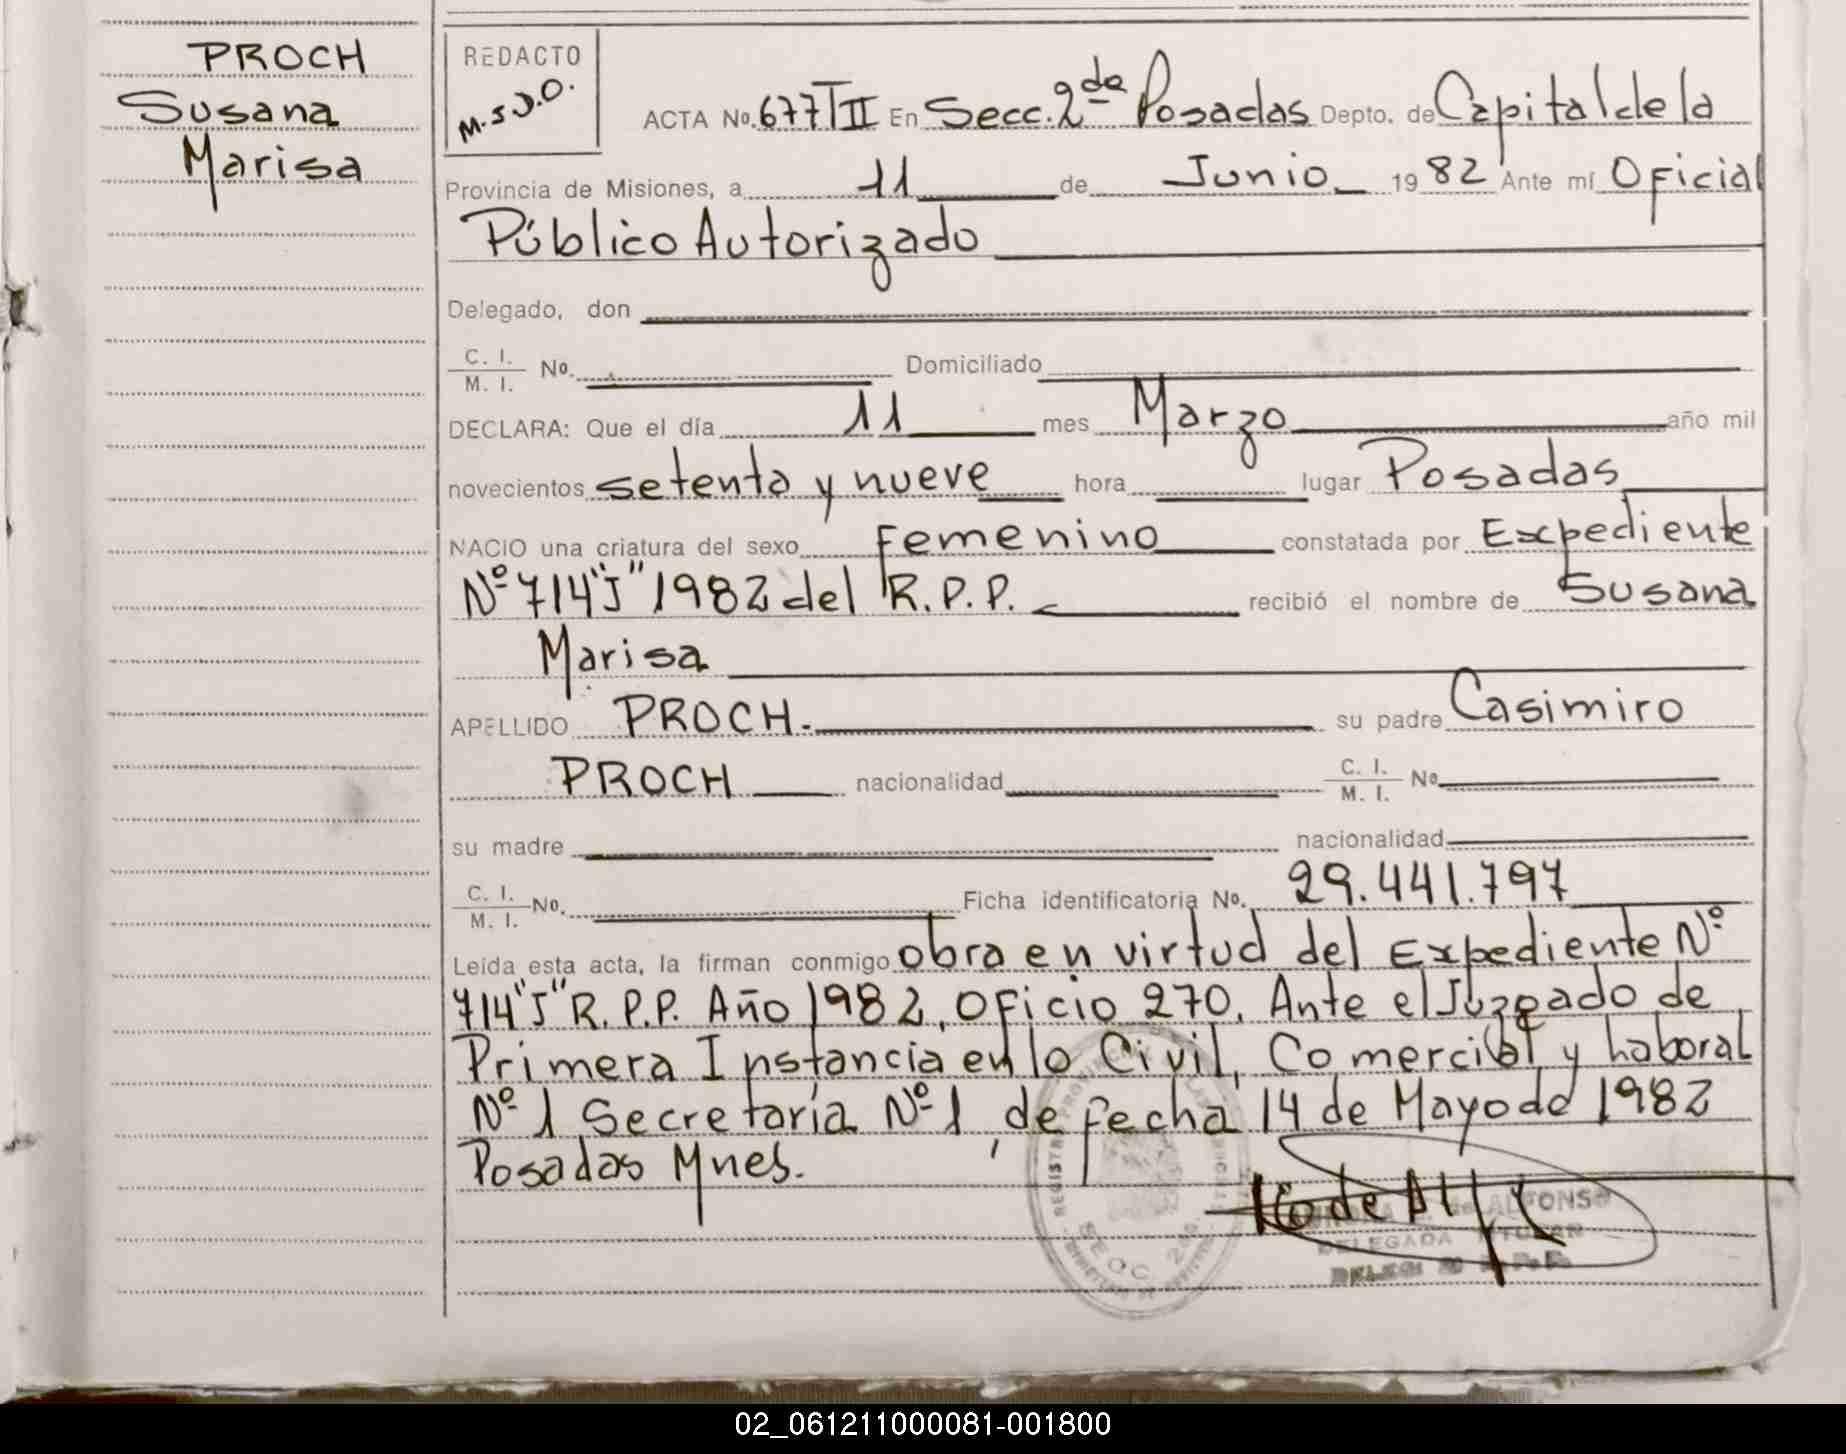 PROCH
Susana
Marisa
REDACTO
M.S.J.O.
ACTA No. 677 T II En Secc. 2da Posadas Depto. de Capital de la
Provincia de Misiones, a 11 de Junio 1982 Ante mí Oficial
Público Autorizado
Delegado, don
C. I. / M. I. No. Domiciliado
DECLARA: Que el día 11 mes Marzo año mil
novecientos setenta y nueve hora lugar Posadas
NACIO una criatura del sexo Femenino constatada por Expediente
Nº 714 "J" 1982 del R.P.P. recibió el nombre de Susana
Marisa
APELLIDO PROCH. su padre Casimiro
PROCH nacionalidad C. I. / M. I. No
su madre nacionalidad
C. I. / M. I. No. Ficha identificatoria No. 29.441.797
Leída esta acta, la firman conmigo obra en virtud del Expediente Nº
714 "J" R.P.P. Año 1982, Oficio 270. Ante el Juzgado de
Primera Instancia en lo Civil, Comercial y Laboral
Nº 1 Secretaría Nº 1, de fecha 14 de Mayo de 1982
Posadas Mnes.
de ALFONSO
DELEGADA TITULAR
02_061211000081-001800